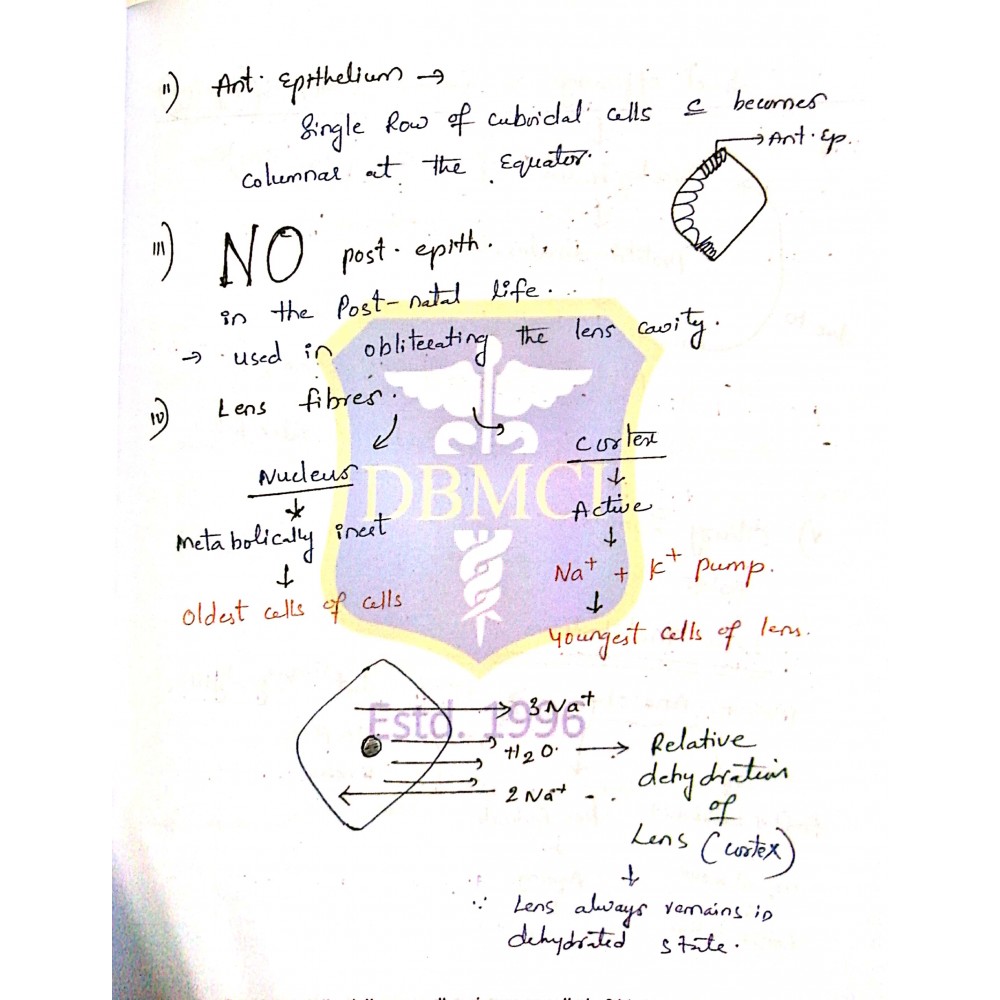 ii) Ant. Epithelium →
Single Row of cuboidal cells c becomes
columnar at the Equator.
→ Ant. Ep.
iii) NO post. epith.
in the Post-natal life.
→ used in obliterating the lens cavity.
iv) Lens fibres.
Nucleus
Cortex
↓
↓
Metabolically inert
Active
↓
↓
Oldest cells of cells
Na+ + K+ pump.
↓
Youngest cells of lens.
DBMCI
Estd. 1996
→ 3Na+
→ H2O. → Relative
dehydration
of
Lens (cortex)
2Na+ - .
↓
∵ Lens always remains in
dehydrated state.